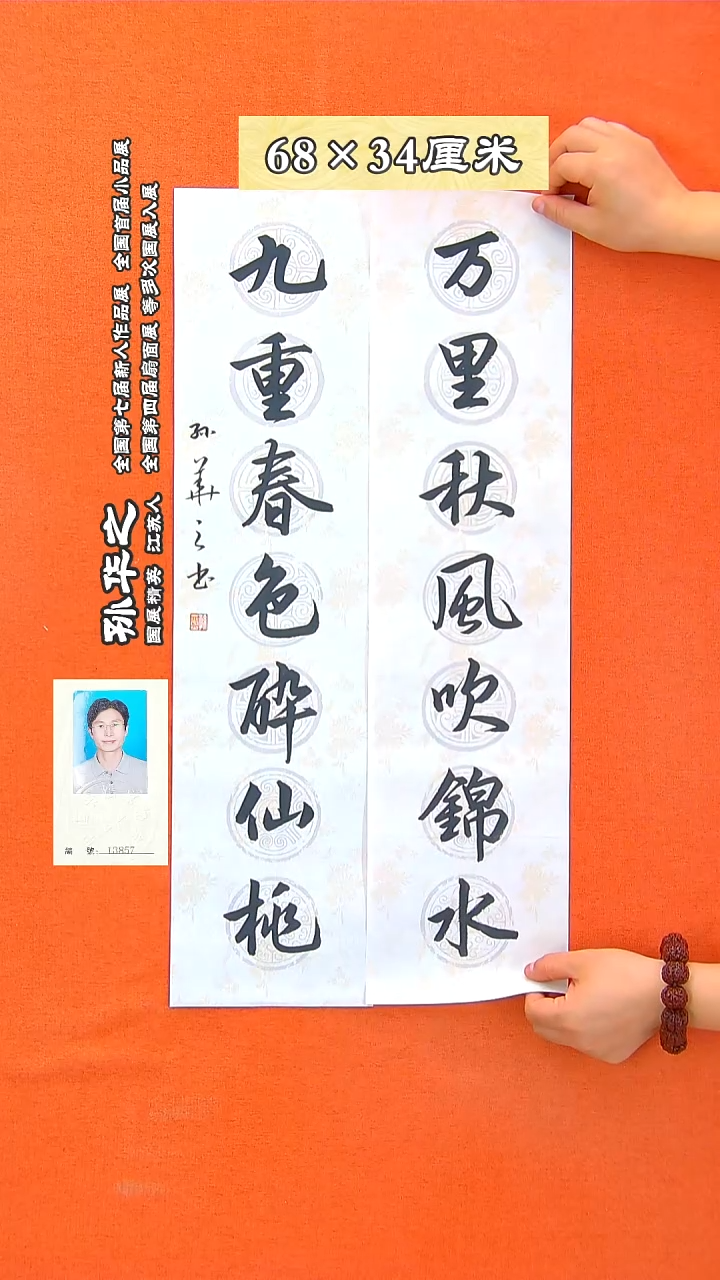 68×34厘米
万里秋風吹錦水
九重春色醉仙桃
孙華之书
全国第七届新人作品展 全国首届小品展
全国第四届扇面展 等多次国展入展
孙华之
国展精英 江苏人
編 號: 13857